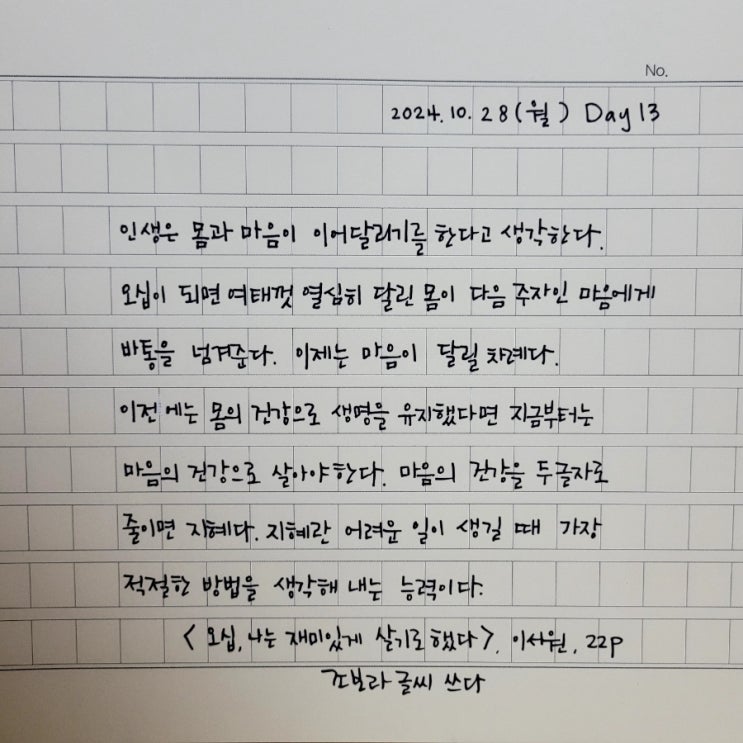 No.
2024. 10. 28 (월) Day 13
인생은 몸과 마음이 이어달리기를 한다고 생각한다.
오십이 되면 여태껏 열심히 달린 몸이 다음 주자인 마음에게
바통을 넘겨준다. 이제는 마음이 달릴 차례다.
이전에는 몸의 건강으로 생명을 유지했다면 지금부터는
마음의 건강으로 살아야한다. 마음의 건강을 두글자로
줄이면 지혜다. 지혜란 어려운 일이 생길 때 가장
적절한 방법을 생각해 내는 능력이다.
<오십, 나는 재미있게 살기로 했다>, 이서원, 22p
조보라 글씨 쓰다